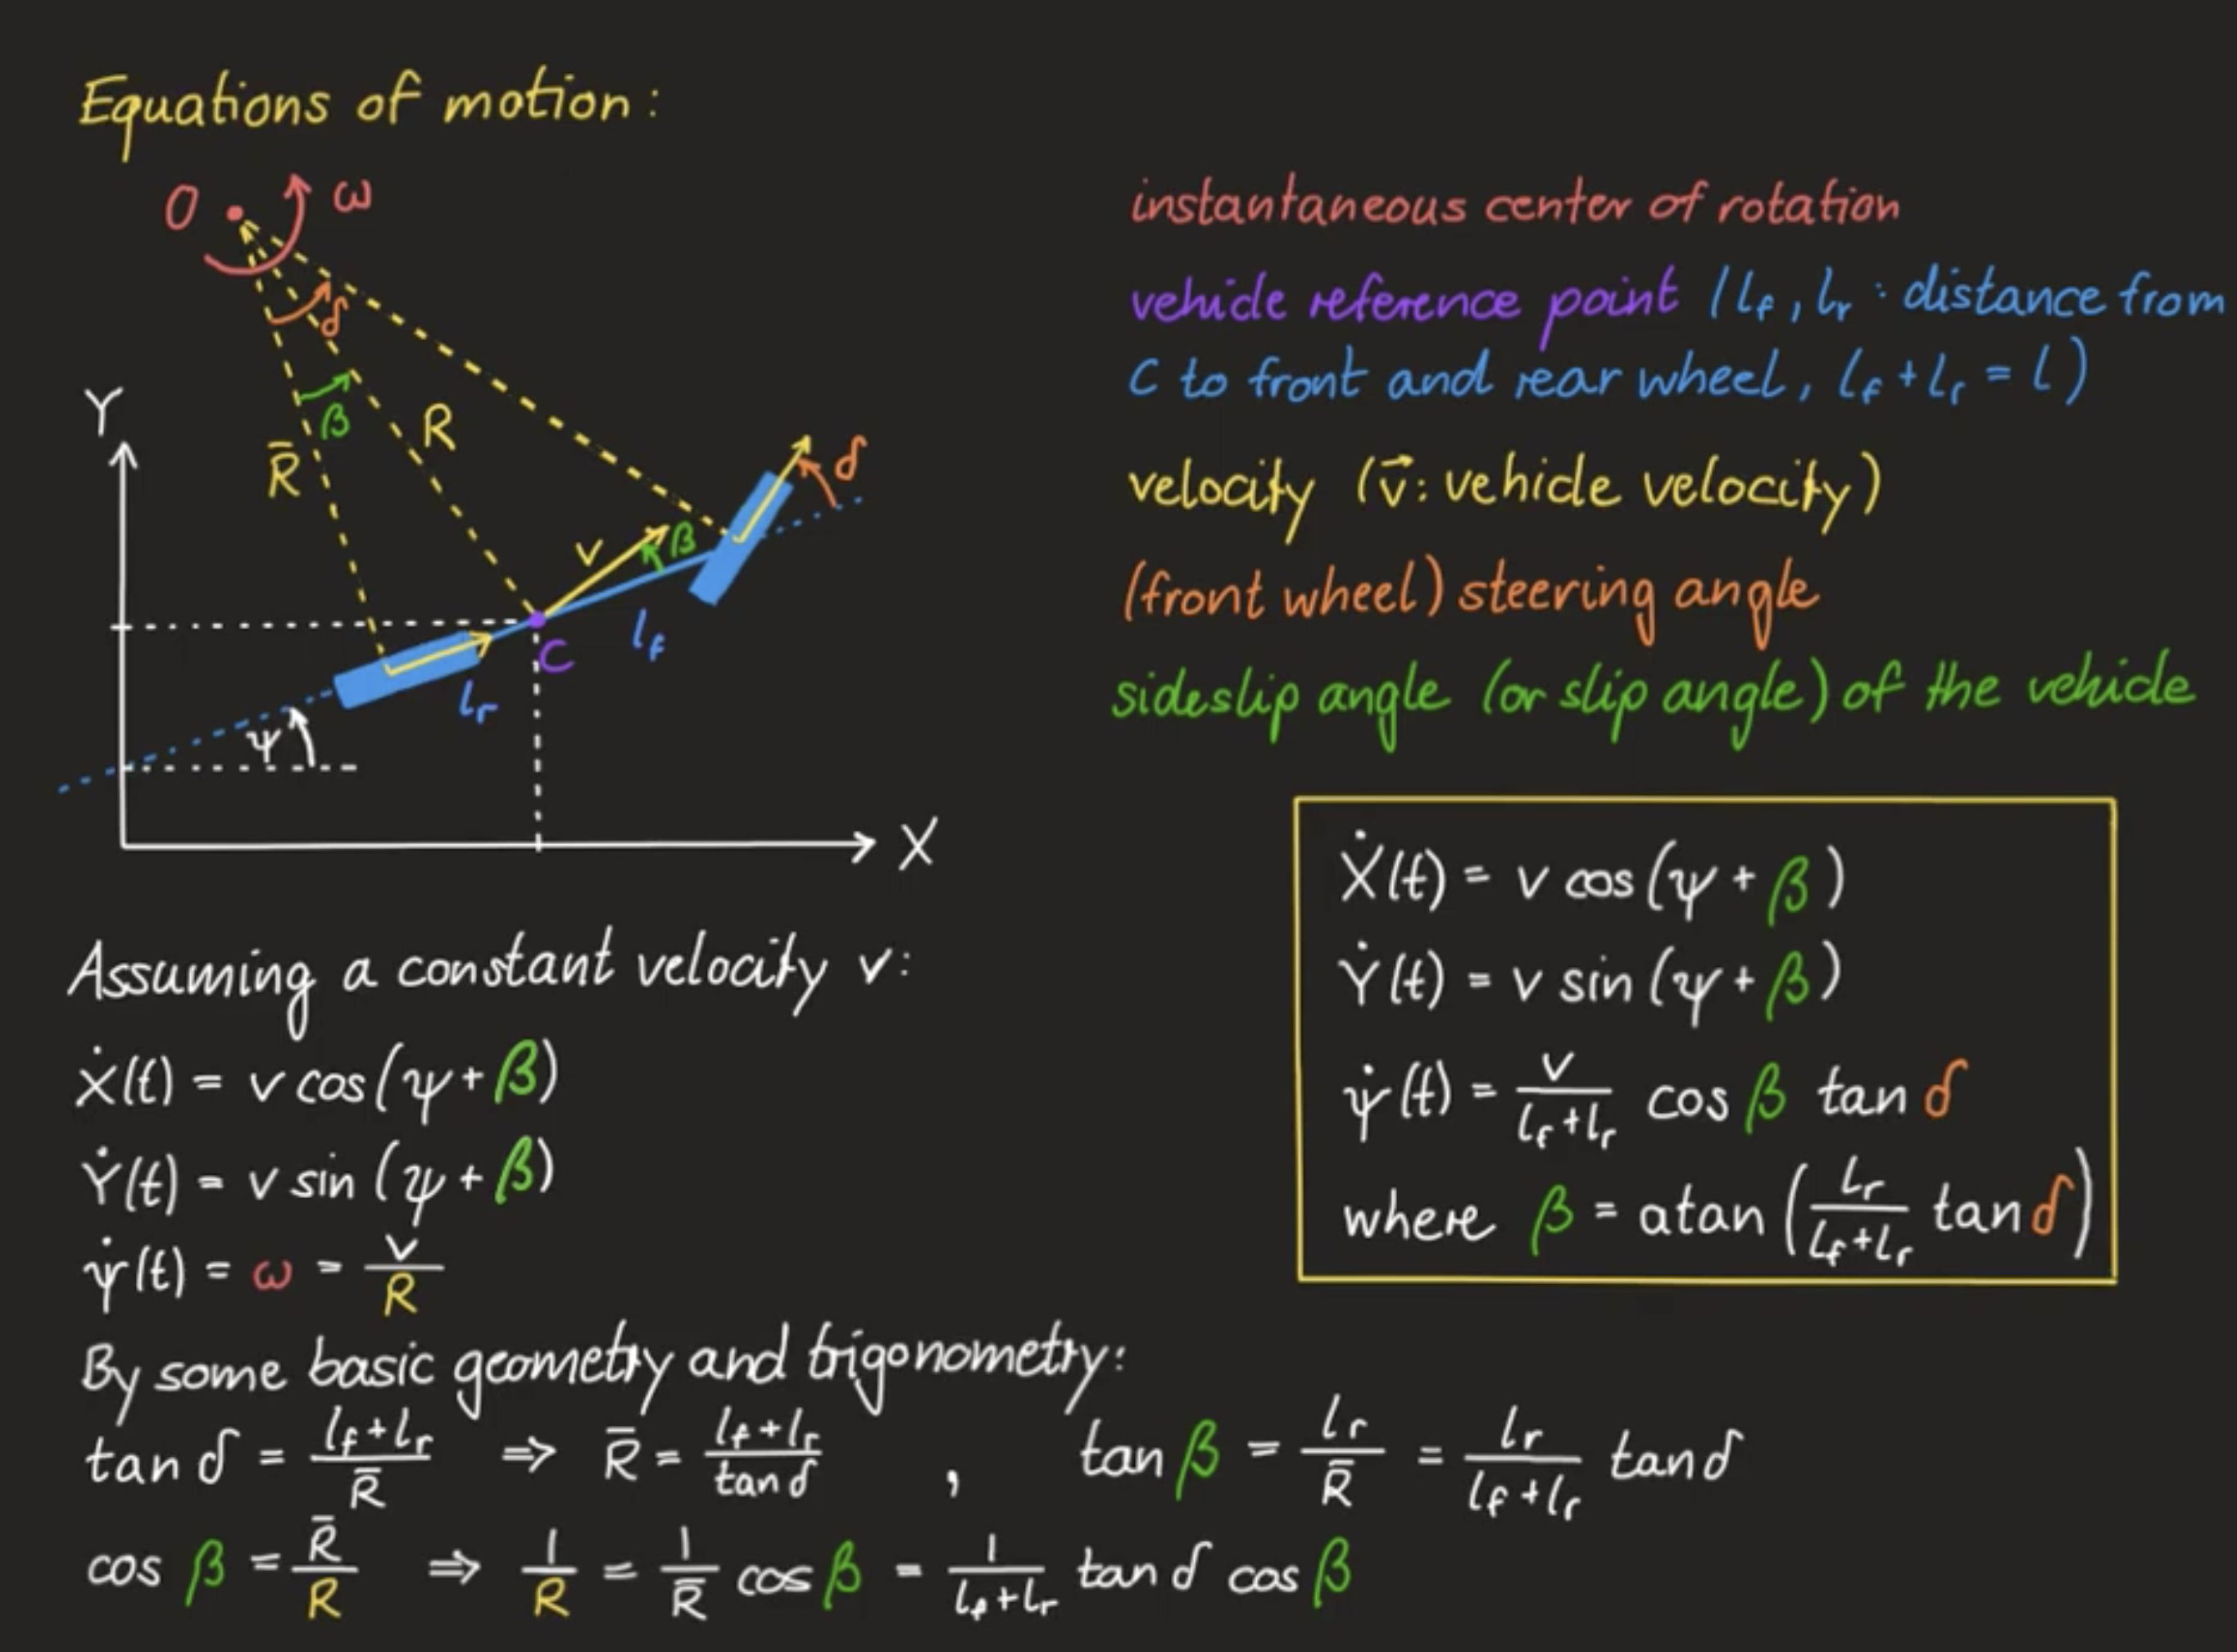 Equations of motion:
O ω
δ
β
R̄
R
Y
δ
v
β
C
l_f
l_r
ψ
X
instantaneous center of rotation
vehicle reference point (l_f, l_r : distance from
C to front and rear wheel, l_f + l_r = l)
velocity (v⃗: vehicle velocity)
(front wheel) steering angle
sideslip angle (or slip angle) of the vehicle
Ẋ(t) = v cos(ψ + β)
Ẏ(t) = v sin(ψ + β)
ψ̇(t) = v/(l_f + l_r) cos β tan δ
where β = atan(l_r/(l_f + l_r) tan δ)
Assuming a constant velocity v:
Ẋ(t) = v cos(ψ + β)
Ẏ(t) = v sin(ψ + β)
ψ̇(t) = ω = v/R
By some basic geometry and trigonometry:
tan δ = (l_f + l_r)/R̄ ⇒ R̄ = (l_f + l_r)/tan δ , tan β = l_r/R̄ = l_r/(l_f + l_r) tan δ
cos β = R̄/R ⇒ 1/R = 1/R̄ cos β = 1/(l_f + l_r) tan δ cos β